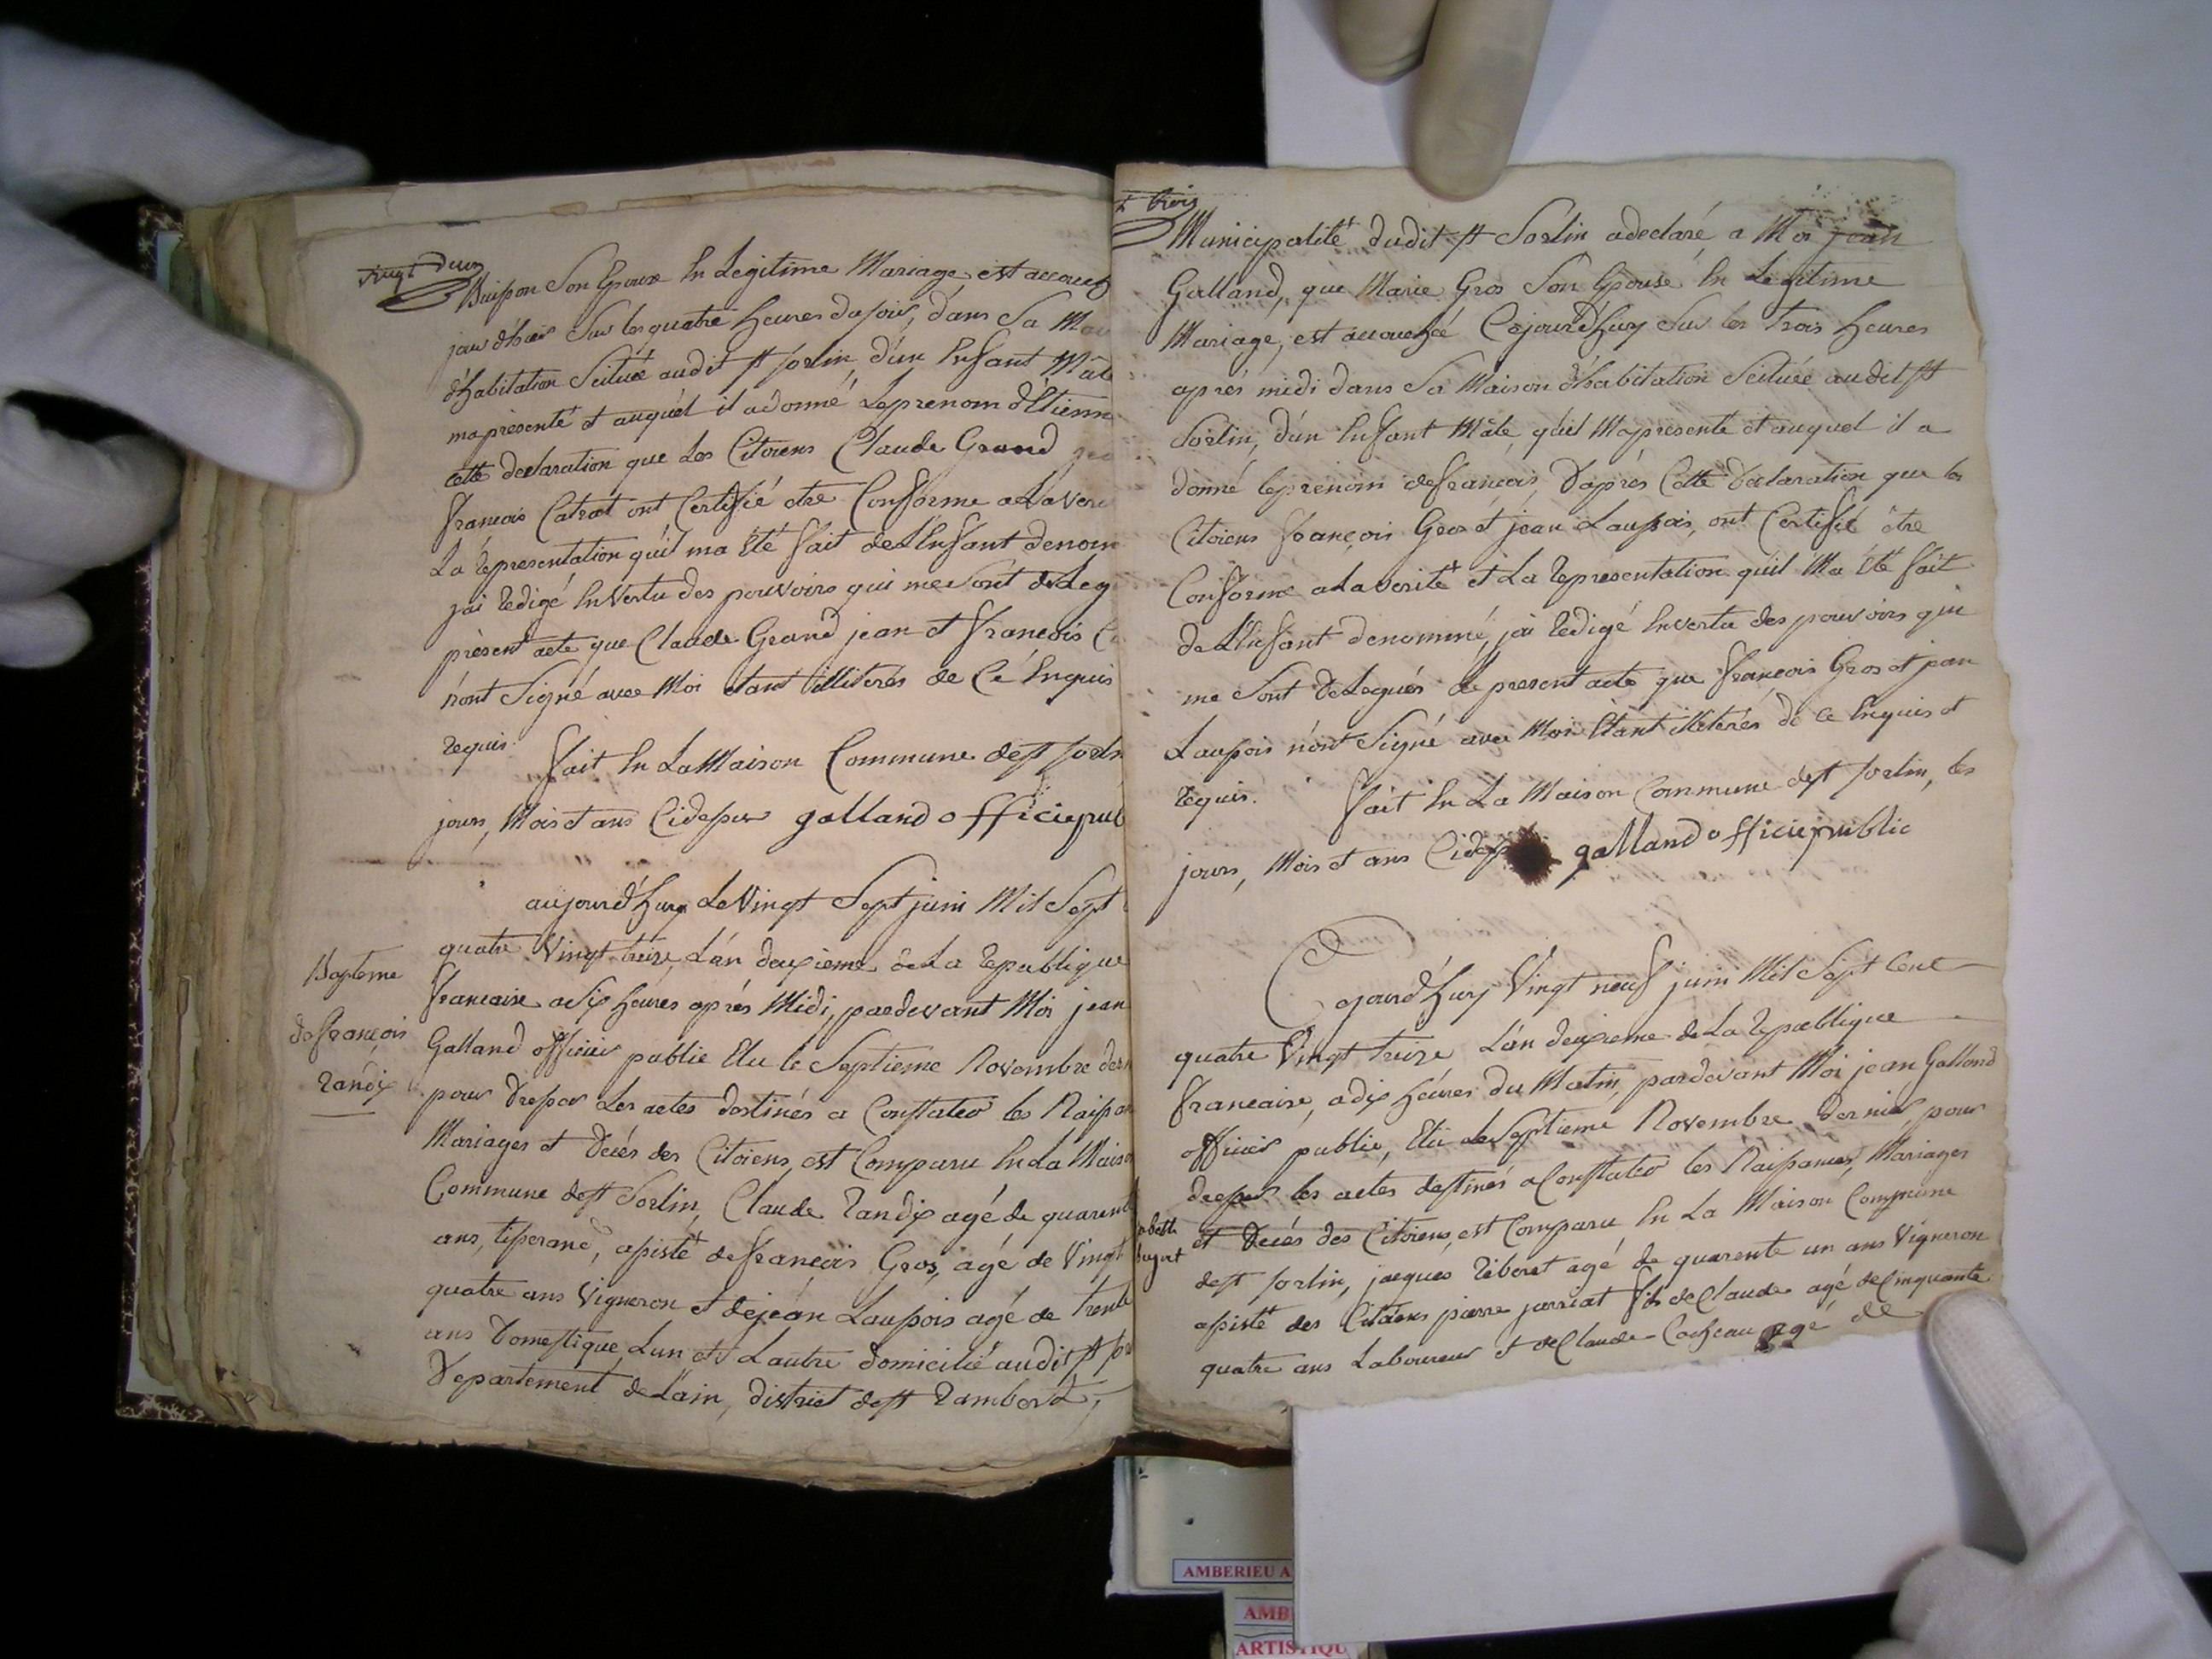 vingt deux
Buisson Son Epouse En Legitime Mariage, est accouch
jour d'hier Sur les quatre heures du soir, dans Sa Mai
d'habitation Scituée audit St Sorlin, d'un Enfant Mâle
ma présenté et auquel il a donné Le prenom d'Etienn
cette declaration que Les Citoiens Claude Grand jea
françois Catrat ont Certifié etre Conforme a La veri
La representation qu'il ma Eté fait de L'Enfant denom
j'ai Redigé En Vertu des pouvoirs qui me Sont deLeg
présent acte que Claude Grand jean et françois Ca
n'ont Signé avec Moi etant illiterés de Ce Enquis
requis.
fait En La Maison Commune de St Sorlin
jours, Mois et ans Cidessus galland officie pub
aujourd'huy Le Vingt Sept juin Mil Sept
quatre Vingt treize, L'an deuxieme de La Republique
francaise a Six heures aprés Midi, pardevant Moi jean
Galland officier public Elu le Septieme Novembre der
pour Dresser Les actes destinés a Constater les Naissan
Mariages et Decés des Citoiens, est Comparu En La Maiso
Commune de St Sorlin, Claude Randix agé de quarente
ans, tisserand, assisté de françois Gros, agé de Vingt
quatre ans Vigneron et de jean Laussois agé de trente
ans Domestique, L'un et L'autre domicilié audit St Sor
Departement de L'ain, district de St Rambert,
Bapteme
de françois
Randix
t trois
Municipalité dudit St Sorlin a declaré a Moi jean
Galland, que Marie Gros Son Epouse En Legitime
Mariage, est accouchée Cejourd'huy Sur les trois heures
aprés midi dans Sa Maison d'habitation Scituée audit St
Sorlin, d'un Enfant Mâle, qu'il Ma presenté et auquel il a
donné le prenom de françois, D'aprés Cette Declaration que les
Citoiens françois Gros et jean Laussois, ont Certifié être
Conforme a La verité et La representation qu'il Ma Eté fait
de L'Enfant denommé, j'ai Redigé En vertu des pouvoirs qui
me Sont deLegués Le present acte que françois Gros et jean
Laussois n'ont Signé avec Moi Etant illiterés de ce Enquis et
requis.
fait En La Maison Commune de St Sorlin, les
jours, Mois et ans Cidess galland officie public
Cejourd'huy Vingt neuf juin Mil Sept Cent
quatre Vingt treize L'an deuxieme de La Republique
francaise, a dix heures du Matin, pardevant Moi jean Galland
officier public, Elu Le Septieme Novembre dernier, pour
dresser les actes destinés a Constater les Naissances, Mariages
et Decés des Citoiens, est Comparu En La Maison Commune
de St Sorlin, jacques Reboret agé de quarente un ans Vigneron
assisté des Citoiens pierre jarriat fils de Claude agé de Cinquante
quatre ans Laboureur et de Claude Cocheau agé de
AMBERIEU A
AMB
ARTISTIQU